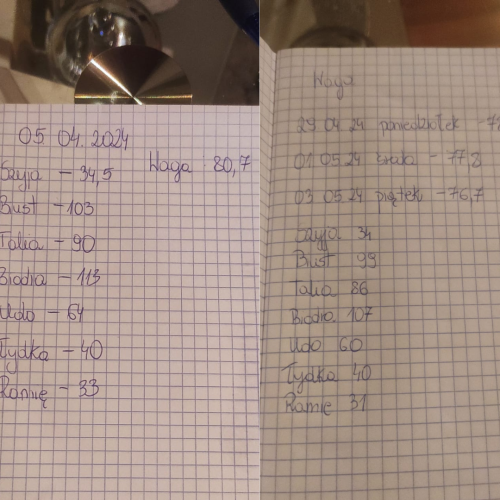 05 04. 2024
Waga 80,7
Szyja - 34,5
Bust - 103
Talia - 90
Biodra - 113
Udo - 64
Łydka - 40
Ramię - 33
Waga
29 04 24 poniedziałek
01 05 24 środa - 77,8
03 05 24 piątek - 76,7
Szyja. 34
Bust 99
Talia 86
Biodra 107
Udo 60
Łydka 40
Ramię 31